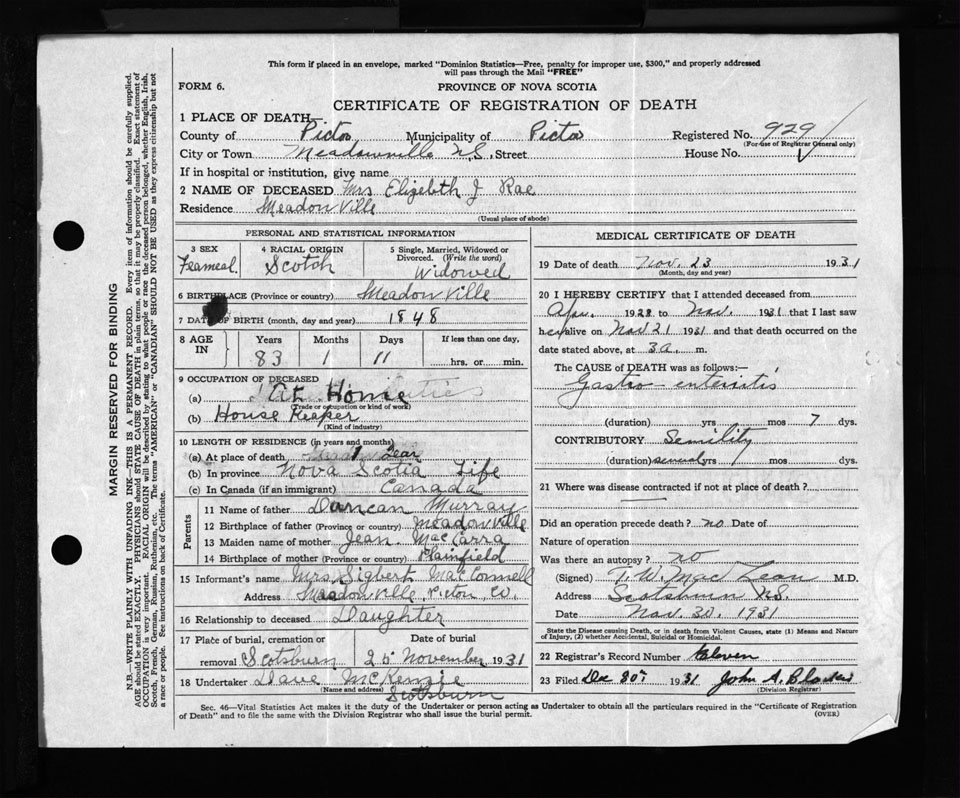 This form if placed in an envelope, marked "Dominion Statistics—Free, penalty for improper use, $300," and properly addressed
will pass through the Mail "FREE"
FORM 6.
PROVINCE OF NOVA SCOTIA
CERTIFICATE OF REGISTRATION OF DEATH
1 PLACE OF DEATH
County of Pictou Municipality of Pictou Registered No. 929
(For use of Registrar General only)
City or Town Meadowville N.S. Street House No.
If in hospital or institution, give name
2 NAME OF DECEASED Mrs Elizebeth J Rae
Residence Meadowville
(Usual place of abode)
PERSONAL AND STATISTICAL INFORMATION
3 SEX
Feameal
4 RACIAL ORIGIN
Scotch
5 Single, Married, Widowed or
Divorced. (Write the word)
Widowed
6 BIRTHPLACE (Province or country) Meadowville
7 DATE OF BIRTH (month, day and year) 1848
8 AGE
IN
Years Months Days If less than one day.
83 1 11 hrs. or min.
9 OCCUPATION OF DECEASED
(a) At Home
(Trade or occupation or kind of work)
(b) House Keaper
(Kind of industry)
10 LENGTH OF RESIDENCE (in years and months)
(a) At place of death 1 Year
(b) In province Nova Scotia Life
(c) In Canada (if an immigrant) Canada
Parents
11 Name of father Duncan Murray
12 Birthplace of father (Province or country) Meadowville
13 Maiden name of mother Jean MacCarra
14 Birthplace of mother (Province or country) Plainfield
15 Informant's name Mrs Sigbert MacConnell
Address Meadowville, Pictou Co.
16 Relationship to deceased Daughter
17 Place of burial, cremation or
removal Scotsburn
Date of burial
25 November 1931
18 Undertaker Dave McKenzie
(Name and address) Scotsburn
MEDICAL CERTIFICATE OF DEATH
19 Date of death Nov. 23 1931
(Month, day and year)
20 I HEREBY CERTIFY that I attended deceased from
Apr. 1928 to Nov. 1931 that I last saw
her alive on Nov 21 1931 and that death occurred on the
date stated above, at 3 a. m.
The CAUSE of DEATH was as follows:—
Gastro-enteritis
(duration) yrs mos 7 dys.
CONTRIBUTORY Semility
(duration) several yrs mos dys.
21 Where was disease contracted if not at place of death?
Did an operation precede death? no Date of
Nature of operation
Was there an autopsy? no
(Signed) T. W. MacLean M.D.
Address Scotsburn N.S.
Date Nov. 30, 1931
State the Disease causing Death, or in death from Violent Causes, state (1) Means and Nature
of Injury, (2) whether Accidental, Suicidal or Homicidal.
22 Registrar's Record Number Eleven
23 Filed Dec 30th 1931 John A.
(Division Registrar)
Sec. 46—Vital Statistics Act makes it the duty of the Undertaker or person acting as Undertaker to obtain all the particulars required in the "Certificate of Registration
of Death" and to file the same with the Division Registrar who shall issue the burial permit.
(OVER)
MARGIN RESERVED FOR BINDING
N.B.—WRITE PLAINLY WITH UNFADING INK—THIS IS A PERMANENT RECORD. Every item of information should be carefully supplied.
AGE should be stated EXACTLY. PHYSICIANS should STATE CAUSE OF DEATH in plain terms, so that it may be properly classified. Exact statement of
OCCUPATION is very important. RACIAL ORIGIN will be described by stating to what people or race the deceased person belonged, whether English, Irish,
Scotch, French, German, Russian, Ruthenian, etc. The terms "AMERICAN" or "CANADIAN" SHOULD NOT BE USED as they express citizenship but not
a race or people. See instructions on back of Certificate.